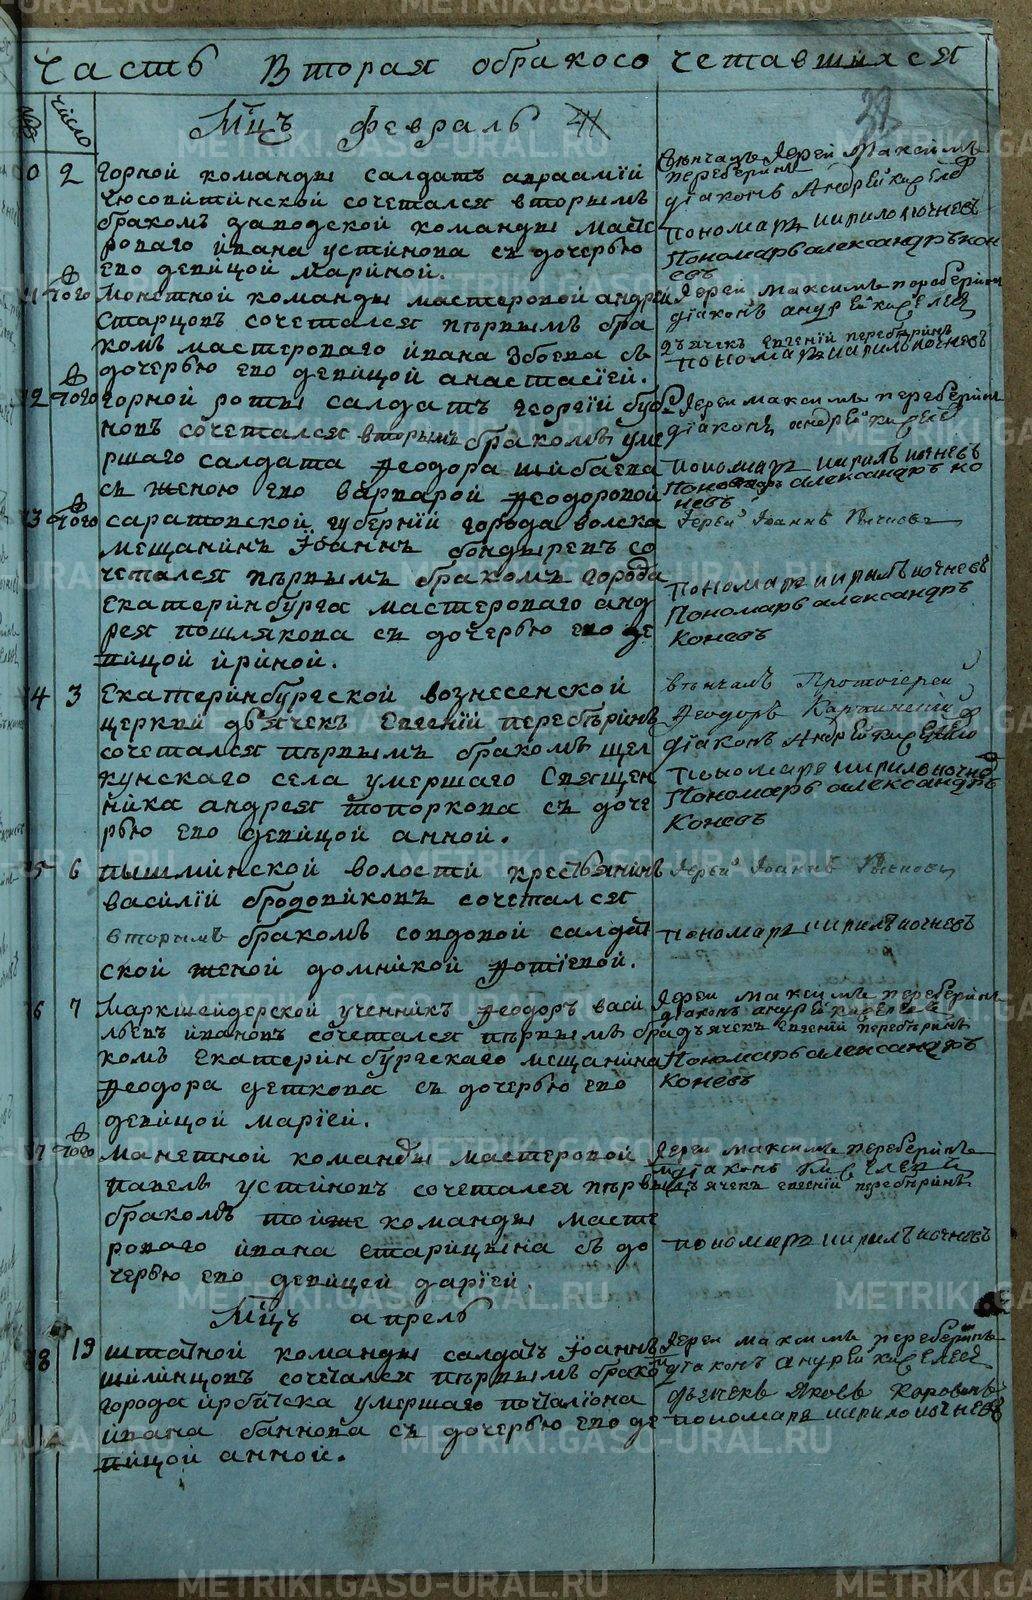 Часть Вторая обракосочетавшихся
№
число
Мцъ Февраль
0 2 Горной команды салдатъ авраамїй
сочетался вторымъ
бракомъ заводской команды масте
роваго ивана устинова съ дочерью
ево девицой мариной.
Венчалъ Иерей Максимъ
переберинъ
дїаконъ Андрей
пономарь кирило кочневъ
Пономарь александръ кон
евъ
11 того Монетной команды мастеровой андрей
старцовъ сочетался първымъ бра
комъ мастероваго ивана збоева съ
дочерью ево девицой анастасїей.
Иерей Максимъ переберинъ
дїаконъ андрей
дьячекъ евгенїй переберинъ
пономарь кирилъ кочневъ
12 того горной роты салдатъ георгїй буб
новъ сочетался вторымъ бракомъ уме
ршаго салдата Ѳеодора шибаева
съ женою ево варварой Ѳеодоровой
Иерей максимъ переберинъ
дїаконъ андрей
пономарь кирилъ кочневъ
Пономарь александръ ко
невъ
13 того саратовской губернїй города волска
мещанинъ Їоаннъ бондыревъ со
четался първымъ бракомъ города
Екатеринбурга мастероваго анд
рея пошлякова съ дочерью ево де
вицой ириной.
Иерей Іоаннъ
Пономарь кирилъ кочневъ
Пономарь александръ
Коневъ
14 3 Екатеринбургской вознесенской
церкви дьячекъ Евгенїй переберинъ
сочетался първымъ бракомъ щел
кунскаго села умершаго Священ
ника андрея топоркова съ доче
рью ево девицой анной.
венчалъ Протоіерей
Ѳеодоръ Карпинскій
дїаконъ Андрей
пономарь кирило кочнев
Пономарь александръ
Коневъ
15 6 пышминской волости крестьянинъ
василїй бродовиковъ сочетался
вторымъ бракомъ совдовой салдат
ской женой домникой Ѳотїевой.
Иерей Іоаннъ
пономарь кирилъ кочневъ
16 7 Маркшейдерской ученикъ Ѳеодоръ васи
льевъ ивановъ сочетался първымъ бра
комъ Екатеринбургскаго мещанина
Ѳеодора деткова съ дочерью ево
девицой марїей.
Иерей Максимъ переберинъ
дїаконъ андрей
дьячекъ евгенїй переберинъ
Пономарь александръ
Коневъ
17 того манетной команды мастеровой
павелъ устиновъ сочетался първымъ
бракомъ тойже команды масте
роваго ивана старицына съ до
черью ево девицей дарїей.
Иерей максимъ переберинъ
дїаконъ
дьячекъ евгенїй переберинъ
пономарь кирилъ кочневъ
Мцъ апрель
18 19 штатной команды салдатъ Їоаннъ
шилинцовъ сочетался първымъ брако
города ирбитска умершаго почталїона
ивана баннова съ дочерью ево де
вицой анной.
Иерей максимъ переберинъ
дїаконъ андрей
дьячекъ Яковъ Коровинъ
пономарь кирило кочневъ
METRIKI.GASO-URAL.RU